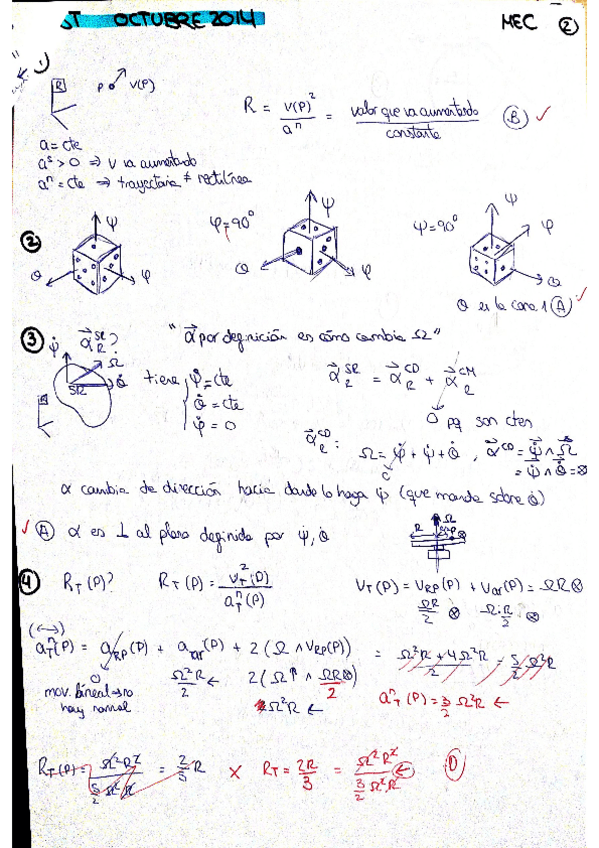 ST OCTUBRE 2014 MEC 2
1)
R P v(P)
R = v(P)² / aⁿ = valor que va aumentado / constante B ✓
a = cte
aˢ > 0 ⇒ v va aumentado
aⁿ = cte ⇒ trayectoria ≠ rectilínea
2 ψ φ=90° ψ ψ=90° ψ φ
θ φ θ φ θ
θ es la cara 1 A ✓
3 α^SR_R? "α por definición es cómo cambia Ω"
ψ̇ Ω θ̇ SR R
tiene φ̇ = cte
θ̇ = cte
ψ̇ = 0
α^SR_R = α^CD_R + α^CM_R
0 pq son ctes
α^CD_R: Ω = φ̇ + ψ̇ + θ̇, α^CD = ψ̇ ∧ Ω
= ψ̇ ∧ θ̇ = ⊗
α cambia de dirección hacia donde lo haga ψ̇ (que manda sobre θ̇)
✓ A α es ⊥ al plano definido por ψ̇, θ̇
4 R_T(P)? R_T(P) = v_T²(P) / aⁿ_T(P) v_T(P) = v_RP(P) + v_ar(P) = ΩR ⊗
ΩR/2 ⊗ Ω·R/2 ⊗
(↔)
aⁿ_T(P) = a_RP(P) + a_ar(P) + 2(Ω ∧ v_RP(P)) = Ω²R + 4Ω²R / 2 = 5/2 Ω²R
0 Ω²R/2 ← 2(Ω↑ ∧ ΩR⊗/2)
mov. lineal → no
hay normal
Ω²R ← aⁿ_T(P) = 3/2 Ω²R ←
R_T(P) = Ω²R² / 5/2 Ω²R = 2/5 R × R_T = 2R/3 = Ω²R² / 3/2 Ω²R ← D